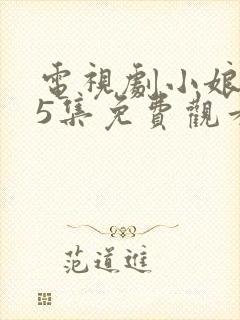 電視劇小娘
5集免費觀
范道進